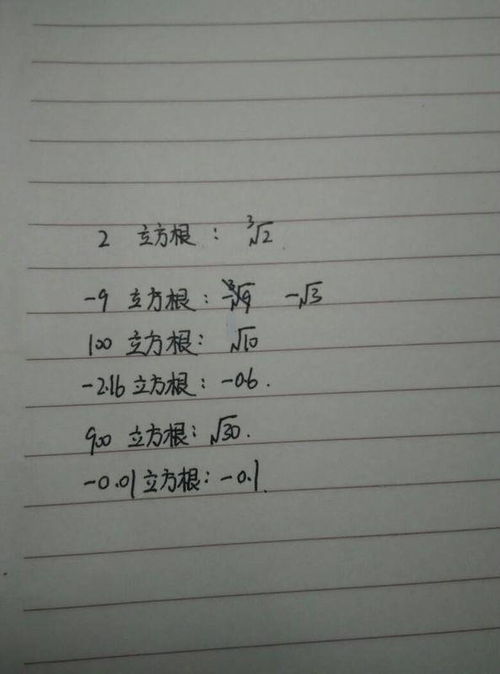 2 立方根: ³√2
-9 立方根: -√3
100 立方根: √10
-2.16 立方根: -0.6.
900 立方根: √30.
-0.01 立方根: -0.1.